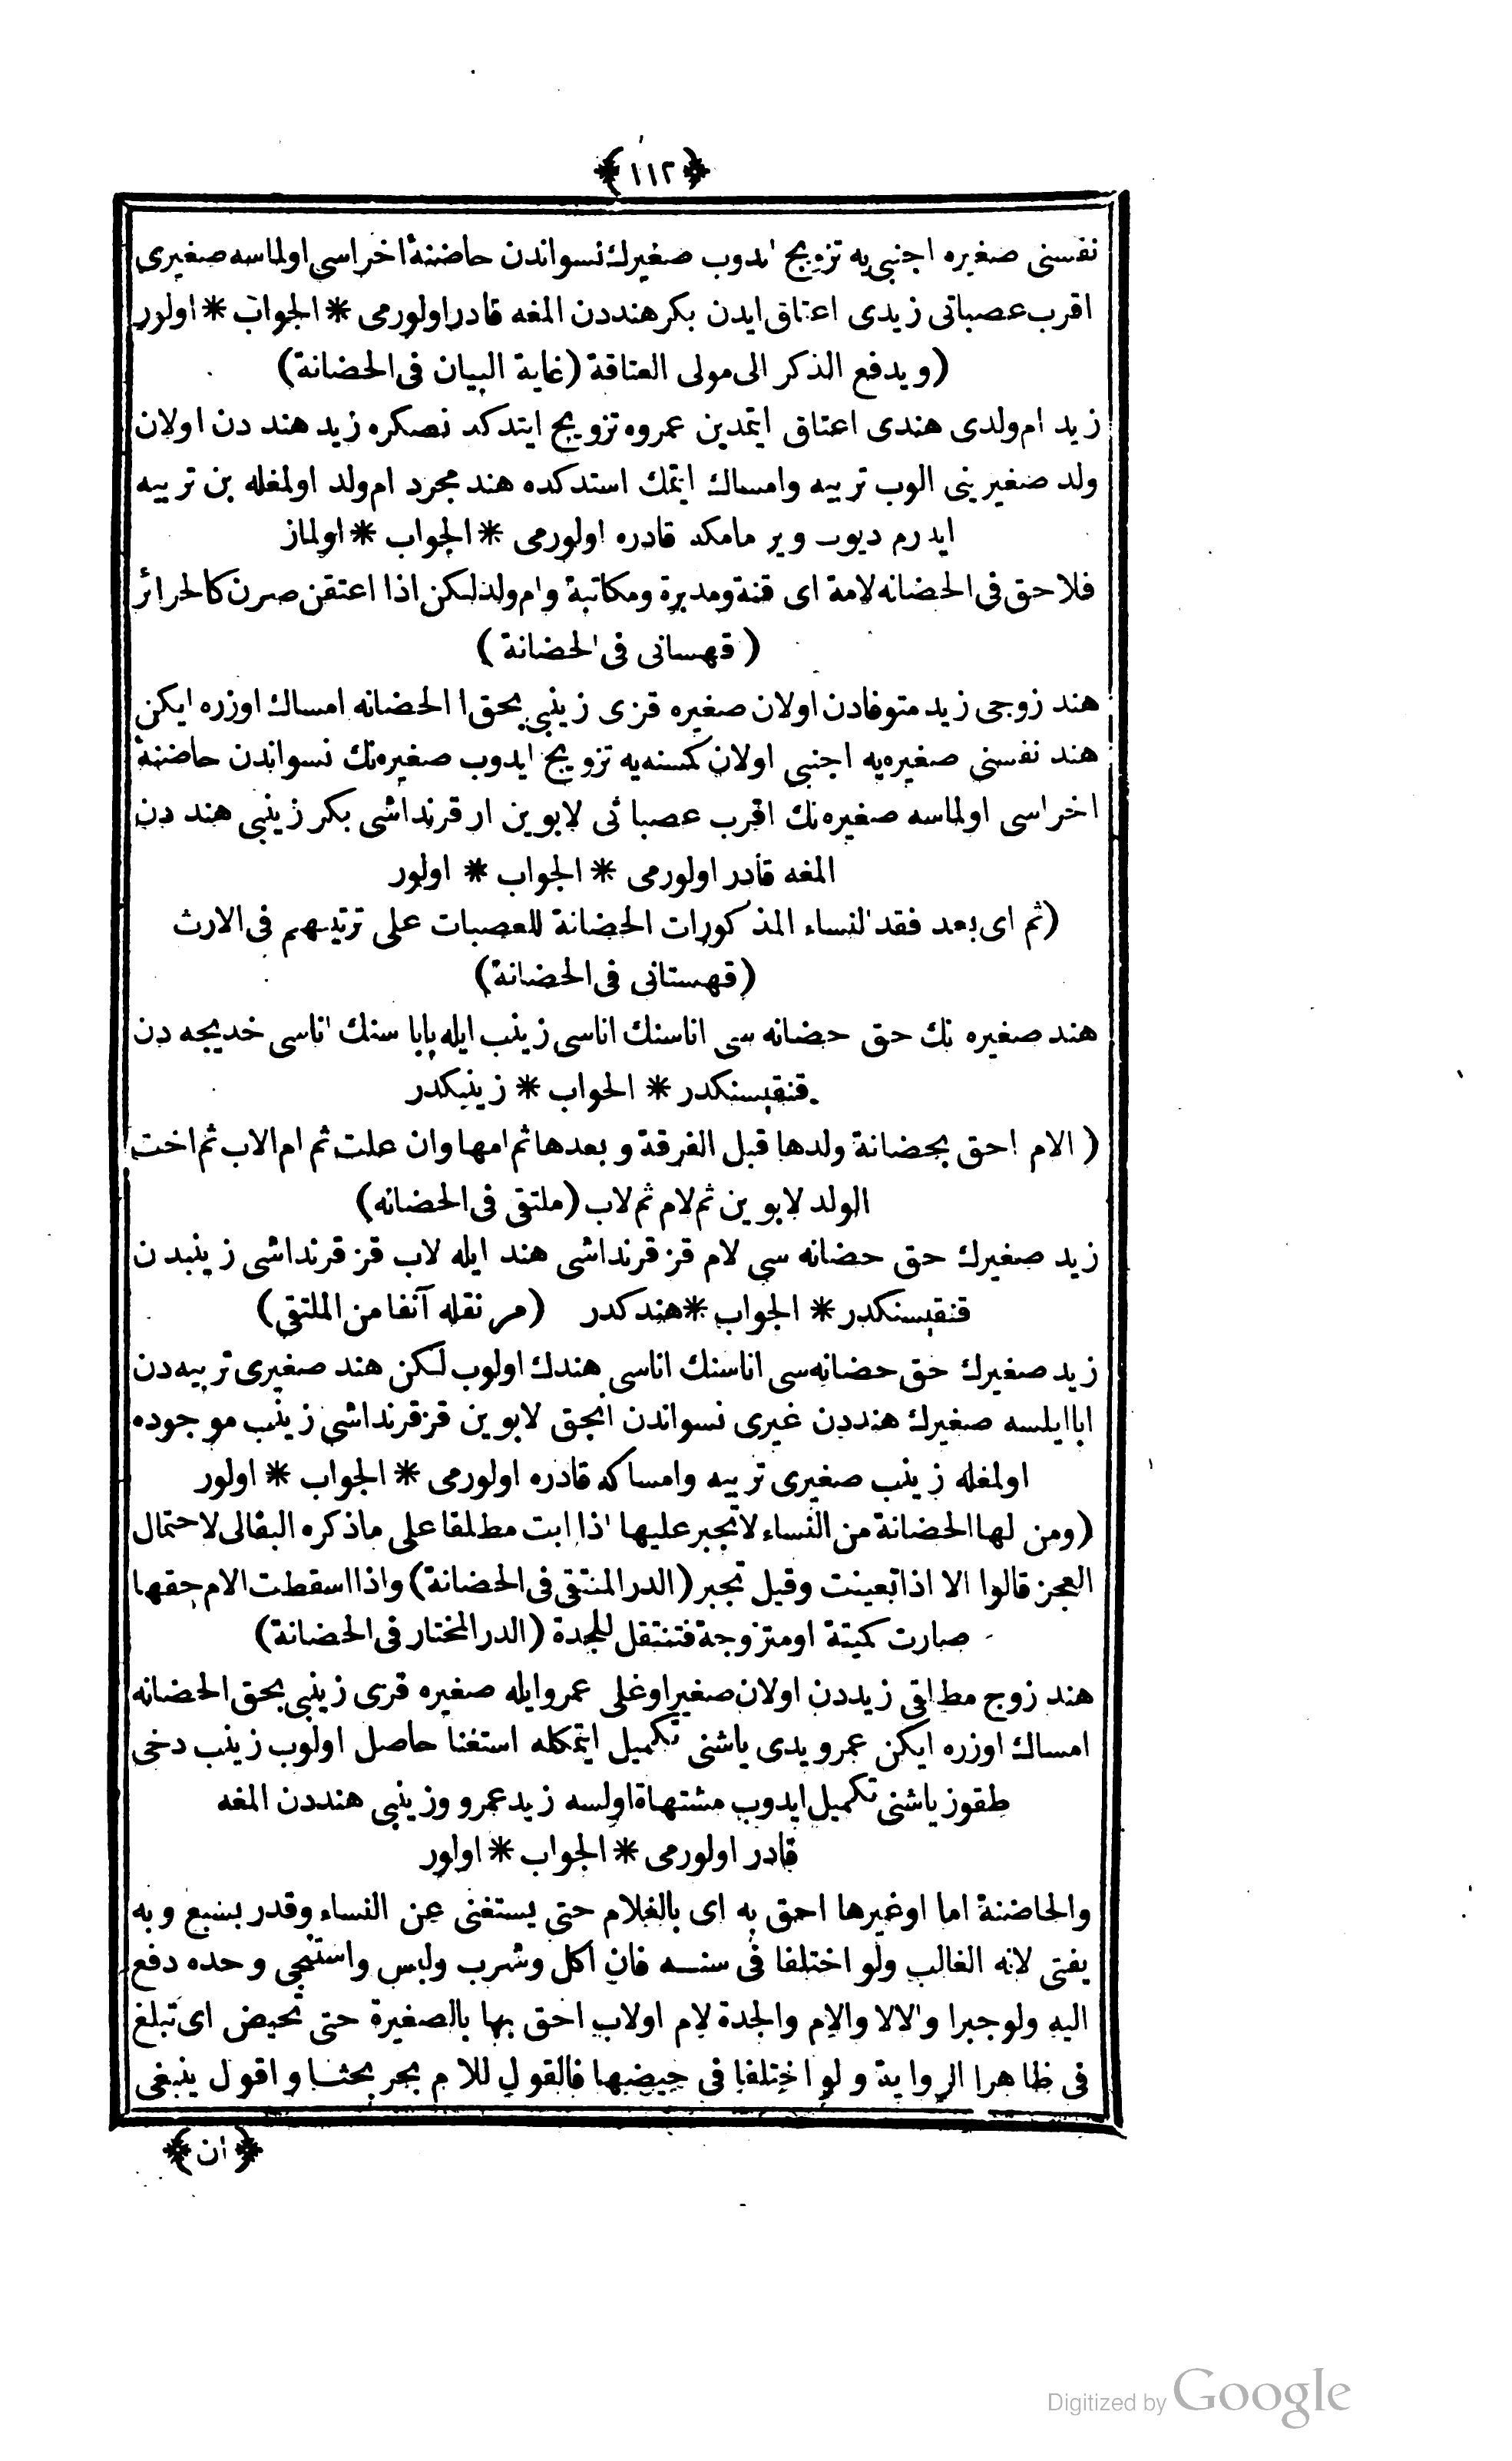 ﴿١١٢﴾
نفسنى صغيره اجنبى يه تزويج ايدوب صغيرك نسواندن حاضنۀ اخراسى اولماسه صغيرى
اقرب عصباتى زيدى اعتاق ايدن بكر هنددن المغه قادر اولورمى * الجواب * اولور
(ويدفع الذكر الى مولى العتاقة (غاية البيان فى الحضانة)
زيد ام ولدى هندى اعتاق ايتمدين عمروه تزويج ايتدكد نصكره زيد هند دن اولان
ولد صغيرينى الوب تربيه وامساك ايتمك استدكده هند مجرد ام ولد اولمغله بن تربيه
ايدرم ديوب ويرمامكه قادره اولورمى * الجواب * اولماز
فلا حق فى الحضانه لامة اى قنة ومدبرة ومكاتبة وام ولد لكن اذا اعتقن صرن كالحرائر
(قهسانى فى الحضانة)
هند زوجى زيد متوفادن اولان صغيره قزى زينبى بحق ا الحضانه امساك اوزره ايكن
هند نفسنى صغيره يه اجنبى اولان كمسنه يه تزويج ايدوب صغيره نك نسواندن حاضنۀ
اخراسى اولماسه صغيره نك اقرب عصباتى لابوين ار قرنداشى بكر زينبى هند دن
المغه قادر اولورمى * الجواب * اولور
(ثم اى بعد فقد النساء المذكورات الحضانة للعصبات على ترتيبهم فى الارث
(قهستانى فى الحضانة)
هند صغيره نك حق حضانه سى اناسنك اناسى زينب ايله باباسنك اناسى خديجه دن
قنقيسنكدر * الجواب * زينبكدر
(الام احق بحضانة ولدها قبل الفرقة وبعدها ثم امها وان علت ثم ام الاب ثم اخت
الولد لابوين ثم لام ثم لاب (ملتقى فى الحضانه)
زيد صغيرك حق حضانه سى لام قز قرنداشى هند ايله لاب قز قرنداشى زينبدن
قنقيسنكدر * الجواب * هندكدر (مر نقله آنفا من الملتقى)
زيد صغيرك حق حضانه سى اناسنك اناسى هندك اولوب لكن هند صغيرى تربيه دن
ابا ايلسه صغيرك هنددن غيرى نسواندن انجق لابوين قز قرنداشى زينب موجوده
اولمغله زينب صغيرى تربيه وامساكه قادره اولورمى * الجواب * اولور
(ومن لها الحضانة من النساء لاتجبر عليها اذا ابت مطلقا على ماذكره البقالى لاحتمال
العجز قالوا الا اذا تعينت وقيل تجبر (الدر المنتقى فى الحضانة) واذا اسقطت الام حقها
صارت كميتة او متزوجة فتنتقل للجدة (الدر المختار فى الحضانة)
هند زوج مطلقى زيددن اولان صغير اوغلى عمرو ايله صغيره قزى زينبى بحق الحضانه
امساك اوزره ايكن عمرو يدى ياشنى تكميل ايتمكله استغنا حاصل اولوب زينب دخى
طقوز ياشنى تكميل ايدوب مشتهاة اولسه زيد عمرو وزينبى هنددن المغه
قادر اولورمى * الجواب * اولور
والحاضنة اما اوغيرها احق به اى بالغلام حتى يستغنى عن النساء وقدر بسبع وبه
يفتى لانه الغالب ولو اختلفا فى سنه فان اكل وشرب ولبس واستنجى وحده دفع
اليه ولو جبرا والالا والام والجدة لام اولاب احق بها بالصغيرة حتى تحيض اى تبلغ
فى ظاهر الرواية ولو اختلفا فى حيضها فالقول للام بحر بحثا واقول ينبغى
﴿ان﴾
Digitized by Google